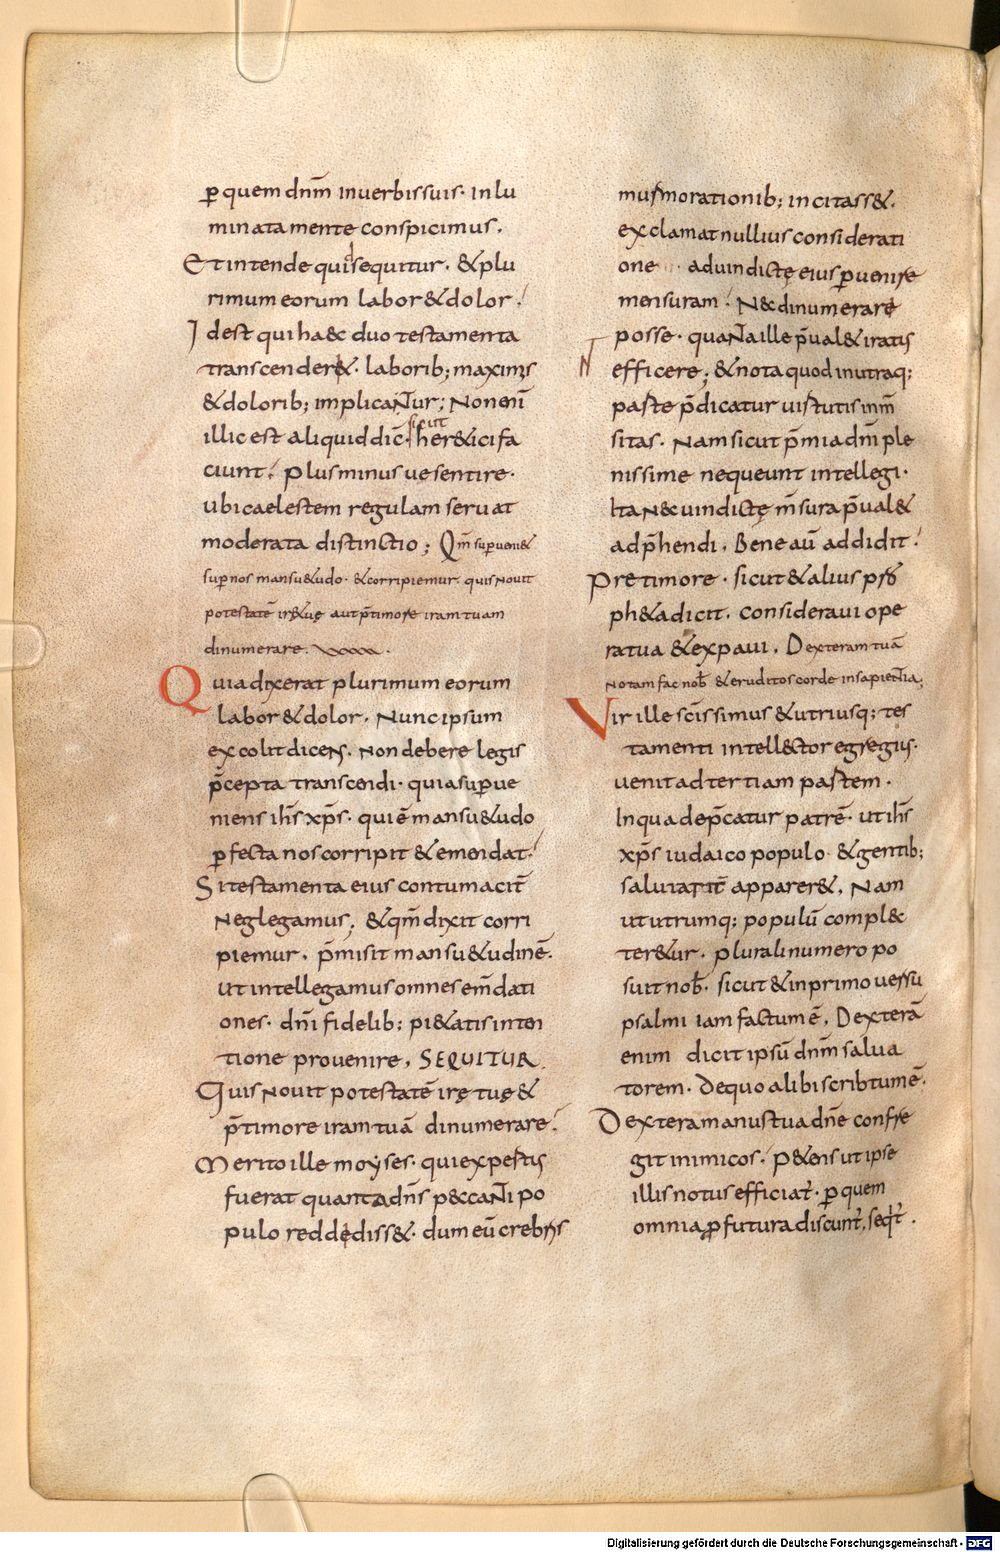 ꝑ quem dn̄m inuerbissuis· inlu
minatamente conspicimus·
Etintende quidsequitur· &plu
rimum eorum labor&dolor·
Idest quiha&c duo testamenta
transcender&· laborib; maximis
&dolorib; implicantur; Nonenī
illic est aliquid dic̄· sicut her&icifa
ciunt· plusminus uesentire·
ubicaelestem regulam seruat
moderata distinctio; Qm̄ suꝑuen&
suꝑnos mansu&udo· &corripiemur quisnouit
potestatē irę tuę aut p̄timore iram tuam
dinumerare·
Quia dixerat plurimum eorum
labor&dolor· Nuncipsum
excolit dicens· Non debere legis
p̄cepta transcendi· quiasuꝑue
niens ih̄s xp̄s· quiē mansu&udo
ꝑfecta nos corripit &emendat·
Sitestamenta eius contumacit̄
neglegamus; &qm̄ dixit corri
piemur· p̄misit mansu&udinē·
ut intellegamus omnes em̄dati
ones· dn̄i fidelib; pi&atis inten
tione prouenire, SEQUITUR·
Quis nouit potestatē irę tuę &
p̄timore iram tuā dinumerare·
Merito ille moyses· qui expertus
fuerat quanta dn̄s peccanti po
pulo reddediss&· dum eū crebris
murmorationib; incitass&·
exclamat nullius considerati
one aduindictę eius ꝑuenire
mensuram· N&c dinumerare
posse· quanta ille p̄ual& iratus
efficere; &nota quod inutraq;
parte p̄dicatur uirtutis inm̄
sitas· Nam sicut p̄mia dn̄i ple
nissime nequeunt intellegi·
Ita n&c uindictę m̄sura p̄ual&
adp̄hendi· Bene aū addidit·
Pretimore· sicut &alius pro
ph&a dicit· consideraui ope
ra tua &expaui· Dexteram tuā
Notam fac nob̄ &eruditos corde in sapientia;
Vir ille sc̄issimus &utriusq; tes
tamenti intellector egregius·
uenit ad tertiam partem·
Inqua dep̄catur patrē· ut ih̄s
xp̄s iudaico populo &gentib;
salutarit̄ apparer&· Nam
ut utrumq; populū compl&c
ter&ur· plurali numero po
suit nob̄· sicut &inprimo uersu
psalmi iam factumē· Dexterā
enim dicit ipsū dn̄m salua
torem· de quo alibi scribtumē·
Dextera manus tua dn̄e confre
git inimicos· P&ens ut ipse
illis notus efficiat̄· ꝑ quem
omnia ꝓfutura discunt̄, seqt̄·
Digitalisierung gefördert durch die Deutsche Forschungsgemeinschaft - DFG